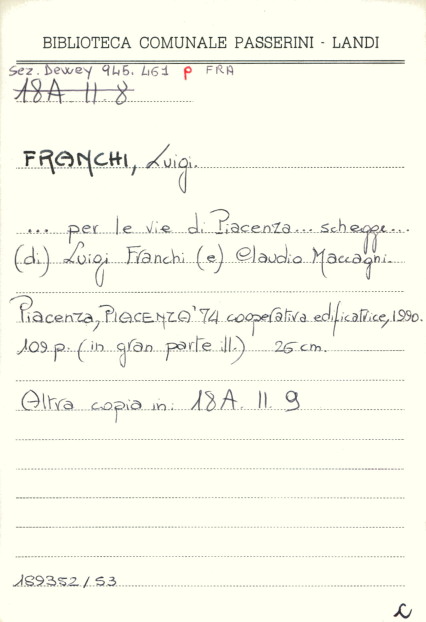 BIBLIOTECA COMUNALE PASSERINI - LANDI
Sez. Dewey 945.461 P FRA
18A II 8
FRANCHI, Luigi.
... per le vie di Piacenza... schegge...
(di) Luigi Franchi (e) Claudio Maccagni.
Piacenza, PIACENZA'74 cooperativa edificatrice, 1990.
109 p. (in gran parte ill.) 26 cm.
Altra copia in: 18A. II. 9
189352/53